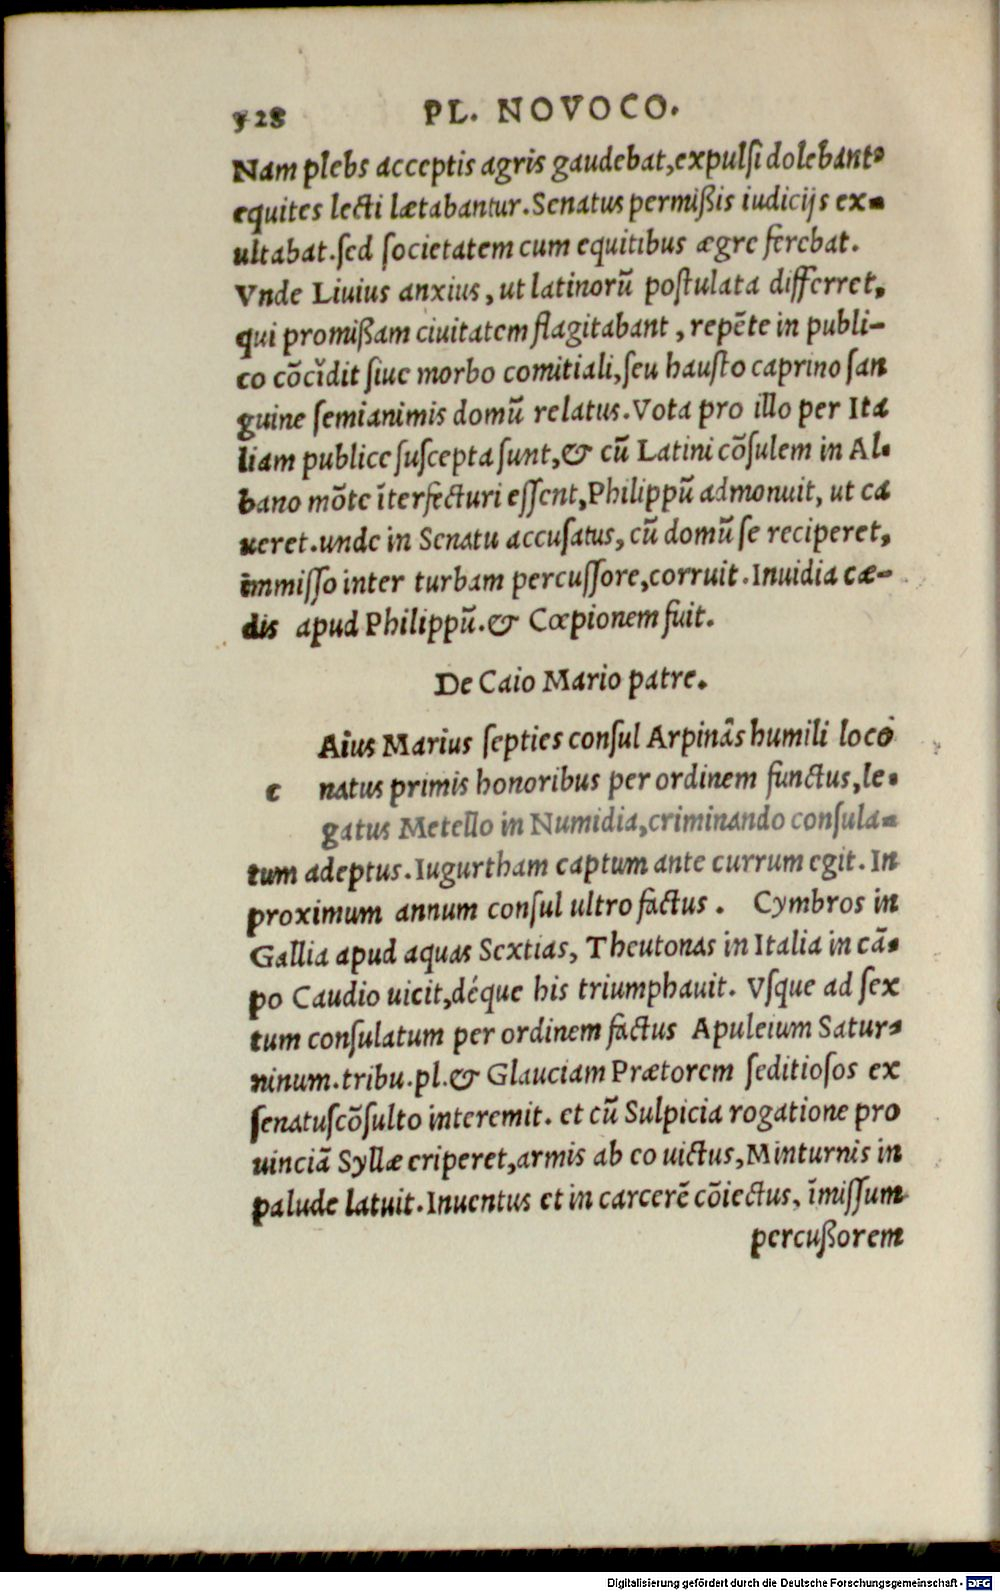 528 PL. NOVOCO.
Nam plebs acceptis agris gaudebat, expulsi dolebant.
equites lecti lætabantur. Senatus permißis iudicijs ex-
ultabat. sed societatem cum equitibus ægre ferebat.
Vnde Liuius anxius, ut latinorū postulata differret,
qui promißam ciuitatem flagitabant, repēte in publi-
co cōcĭdit siue morbo comitiali, seu hausto caprino san
guine semianimis domū relatus. Vota pro illo per Ita
liam publice suscepta sunt, & cū Latini cōsulem in Al-
bano mōte īterfecturi essent, Philippū admonuit, ut ca
ueret. unde in Senatu accusatus, cū domū se reciperet,
immisso inter turbam percussore, corruit. Inuidia cæ-
dis apud Philippū. & Cœpionem fuit.
De Caio Mario patre.
Aius Marius septies consul Arpinās humili loco
c natus primis honoribus per ordinem functus, le-
gatus Metello in Numidia, criminando consula-
tum adeptus. Iugurtham captum ante currum egit. In
proximum annum consul ultro factus. Cymbros in
Gallia apud aquas Sextias, Theutonas in Italia in cā-
po Caudio uicit, déque his triumphauit. Vsque ad sex
tum consulatum per ordinem factus Apuleium Satur-
ninum. tribu. pl. & Glauciam Prætorem seditiosos ex
senatuscōsulto interemit. et cū Sulpicia rogatione pro
uinciā Syllæ eriperet, armis ab eo uictus, Minturnis in
palude latuit. Inuentus et in carcerē cōiectus, īmissum
percußorem
Digitalisierung gefördert durch die Deutsche Forschungsgemeinschaft - DFG